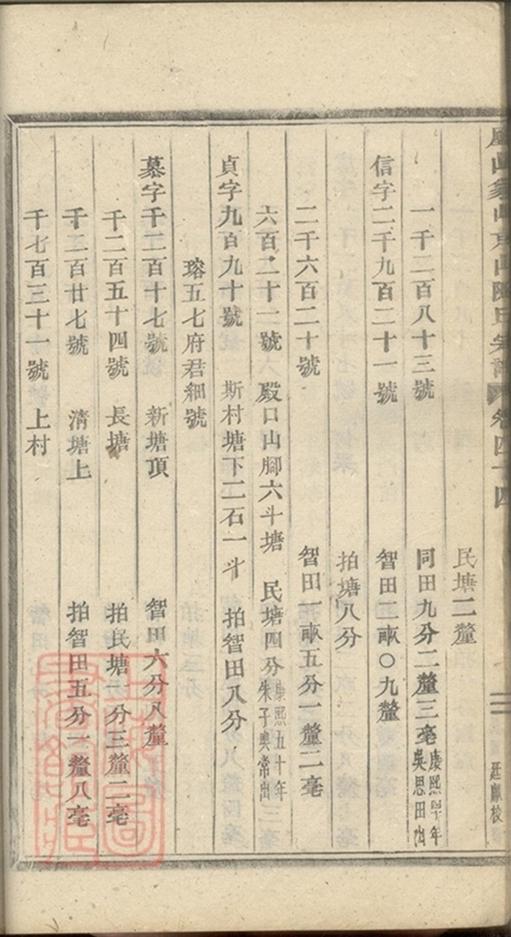 卷四十四
廷獻校
民塘二釐
一千二百八十三號 同田九分二釐三毫 康熙 年吳思田出
信字二千九百二十一號 智田二畝〇九釐
拍塘八分
二千六百二十號 智田一畝五分一釐二毫
六百二十一號 殿口山腳六斗塘 民塘四分 康熙五十年朱子奥常出
貞字九百九十號 斯村塘下二石一斗 拍智田八分
瑢五七府君細號
慕字千二百十七號 新塘頂 智田六分八釐
千二百五十四號 長塘 拍民塘一分三釐二毫
千二百廿七號 清塘上 拍智田五分一釐八毫
千七百三十一號 上村